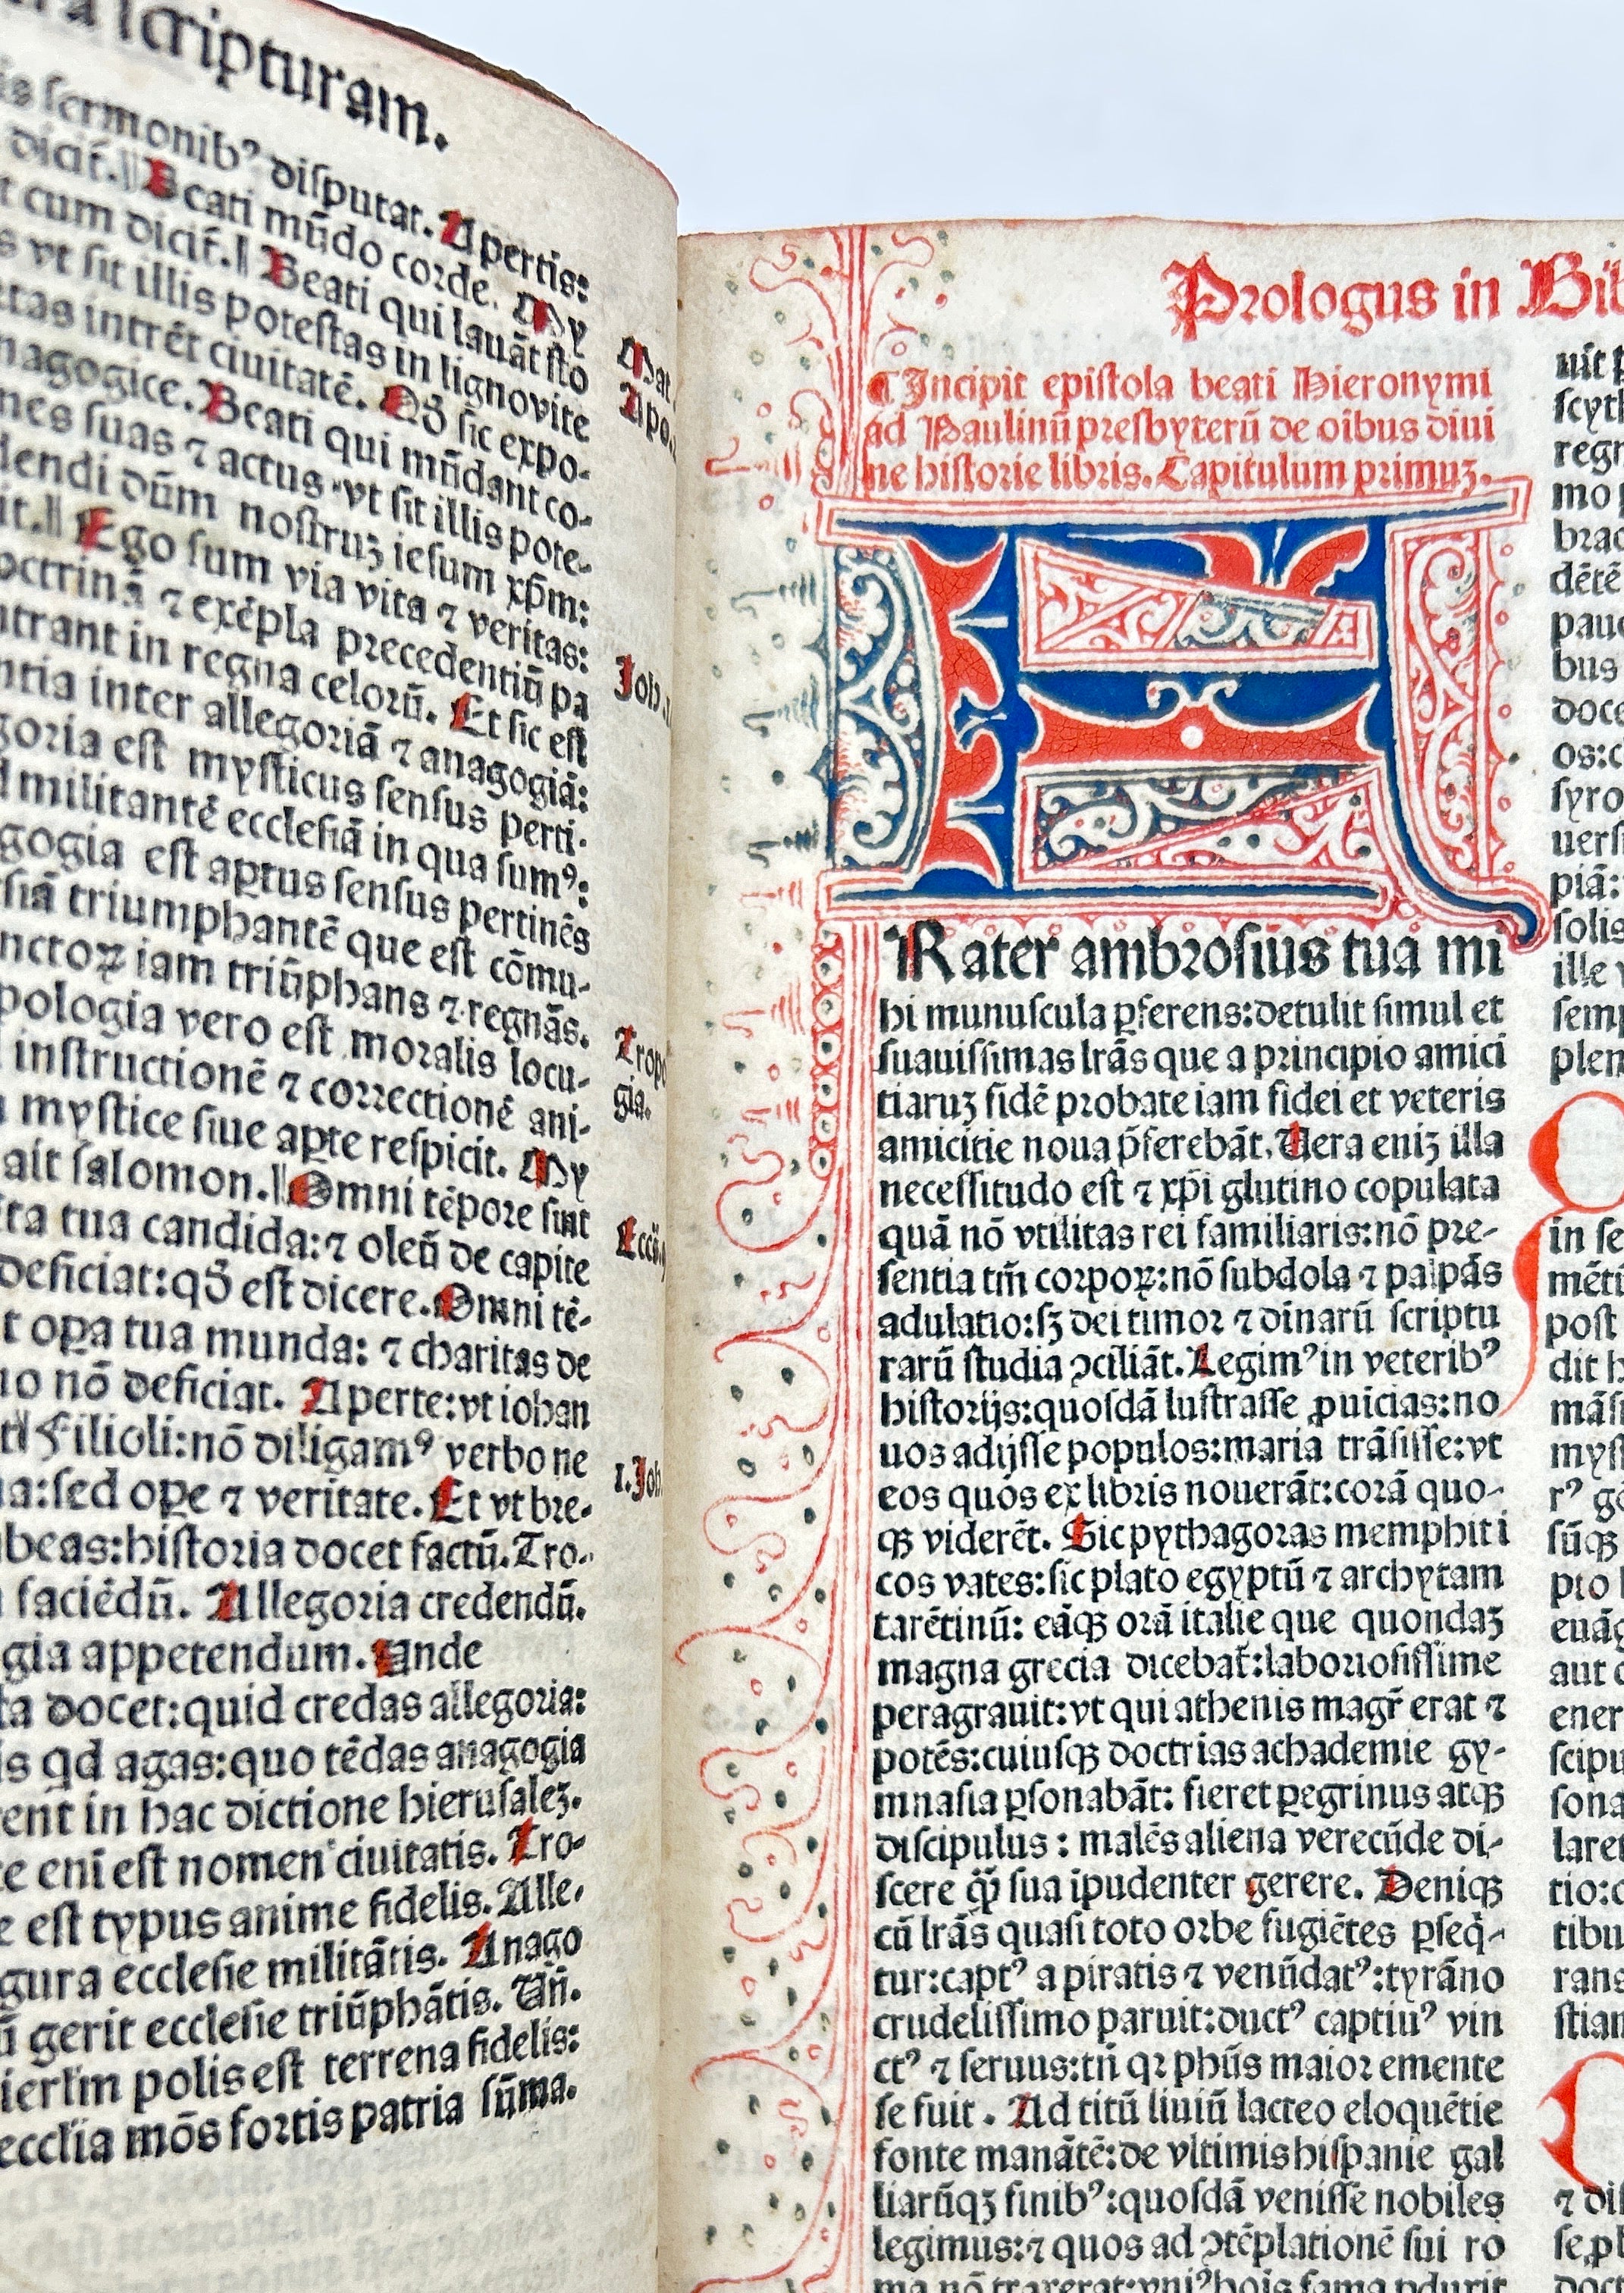 ra scripturam.
is sermonibꝰ disputat. Apertis:
dicit̄. || Beati mūdo corde. My
t cum dicit̄. || Beati qui lauāt sto
s vt sit illis potestas in lignovite
rtas intrēt ciuitatē. Qď sic expo-
nagogice. Beati qui mūdant co-
nes suas ⁊ actus vt sit illis pote-
dendi dūm nostruꝫ iesum xp̄m:
it. || Ego sum via vita ⁊ veritas:
octrinā ⁊ exēpla precedentiū pa
ntrant in regna celorū. Et sic est
ntia inter allegoriā ⁊ anagogiā:
goria est mysticus sensus perti-
d militantē ecclesiā in qua sumꝰ:
gogia est aꝑtus sensus pertinēs
siā triumphantē que est cōmu-
nctoꝝ iam triūphans ⁊ regnās.
pologia vero est moralis locu-
d instructionē ⁊ correctionē ani-
mystice siue aꝑte respicit. My
ait salomon. || Omni tēpore sint
ta tua candida: ⁊ oleū de capite
deficiat: qď est dicere. Omni tē-
t oꝑa tua munda: ⁊ charitas de
uo nō deficiat. Aperte: vt iohan
Filioli: nō diligamꝰ verbo ne
ua: sed oꝑe ⁊ veritate. Et vt bre-
beas: historia docet factū. Tro-
faciēdū. Allegoria credendū.
gia appetendum. Unde
ta docet: quid credas allegoria:
is qd agas: quo tēdas anagogia
rent in hac dictione hierusaleꝫ.
te enī est nomen ciuitatis. Tro-
e est typus anime fidelis. Alle-
gura ecclesie militātis. Anago
ū gerit ecclesie triūphātis. Un̄.
ierl̄m polis est terrena fidelis:
eccl̄ia mōs fortis patria sūma.
Mat.
Apo.
Joh.
Tropo
gia.
Eccl̄
1.Joh.
Prologus in Bib
¶ Incipit epistola beati Hieronymi
ad Paulinū presbyterū de oībus diui
ne historie libris. Capitulum primuꝫ.
F
Rater ambrosius tua mi
hi munuscula ꝑferens: detulit simul et
suauissimas l̄ras que a principio amici
tiaruꝫ fidē probate iam fidei et veteris
amicitie noua p̄ferebāt. Uera eniꝫ illa
necessitudo est ⁊ xp̄i glutino copulata
quā nō vtilitas rei familiaris: nō pre-
sentia tm̄ corpoꝝ: nō subdola ⁊ palpās
adulatio: sꝫ dei timor ⁊ diīnarū scriptu
rarū studia ↄciliāt. Legimꝰ in veteribꝰ
historijs: quosdā lustrasse ꝓuīcias: no
uos adijsse populos: maria trāsisse: vt
eos quos ex libris nouerāt: corā quo-
qꝫ viderēt. Sic pythagoras memphiti
cos vates: sic plato egyptū ⁊ archytam
tarētinū: eāqꝫ orā italie que quondaꝫ
magna grecia dicebat̄: laboriosissime
peragrauit: vt qui athenis magr̄ erat ⁊
potēs: cuiusqꝫ doctrīas achademie gy-
mnasia ꝑsonabāt: fieret ꝑegrinus atqꝫ
discipulus: malēs aliena verecūde di-
scere qꝫ̄ sua īpudenter gerere. Deniqꝫ
cū l̄ras quasi toto orbe fugiētes ꝑseq̄-
tur: captꝰ a piratis ⁊ venūdatꝰ: tyrāno
crudelissimo paruit: ductꝰ captiuꝰ vin
ctꝰ ⁊ seruus: tn̄ qꝛ ph̄us maior emente
se fuit. Ad titū liuiū lacteo eloquētie
fonte manātē: de vltimis hispanie gal
liarūqꝫ finibꝰ: quosdā venisse nobiles
legimus: ⁊ quos ad ↄtēplationē sui ro
ma nō traxerat: vniꝰ hoīs fama ꝑduxit
uit p
scyth
regn
mo p
brac
dētē
pauc
bus
doce
os: c
syro
uersu
piā:
solis
ille v
semp
plen
in se
mētū
post
dit h
māsi
myst
rꝰ gē
sūqꝫ
pto
euāg
aut c
ener
scipu
sona
larer
tio: c
tibu
rans
stian
⁊ dis
se ꝑ